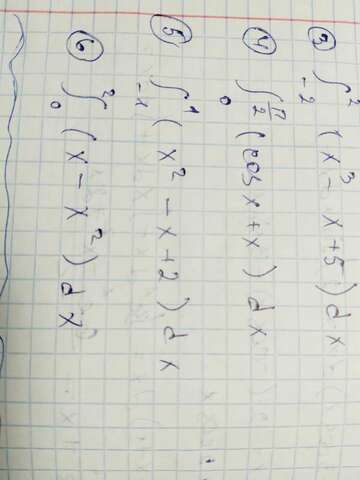 ③ ∫₋₂² (x³ - x + 5) dx
④ ∫₀^(π/2) (cosx + x) dx
⑤ ∫₋₁¹ (x² - x + 2) dx
⑥ ∫₀² (x - x²) dx